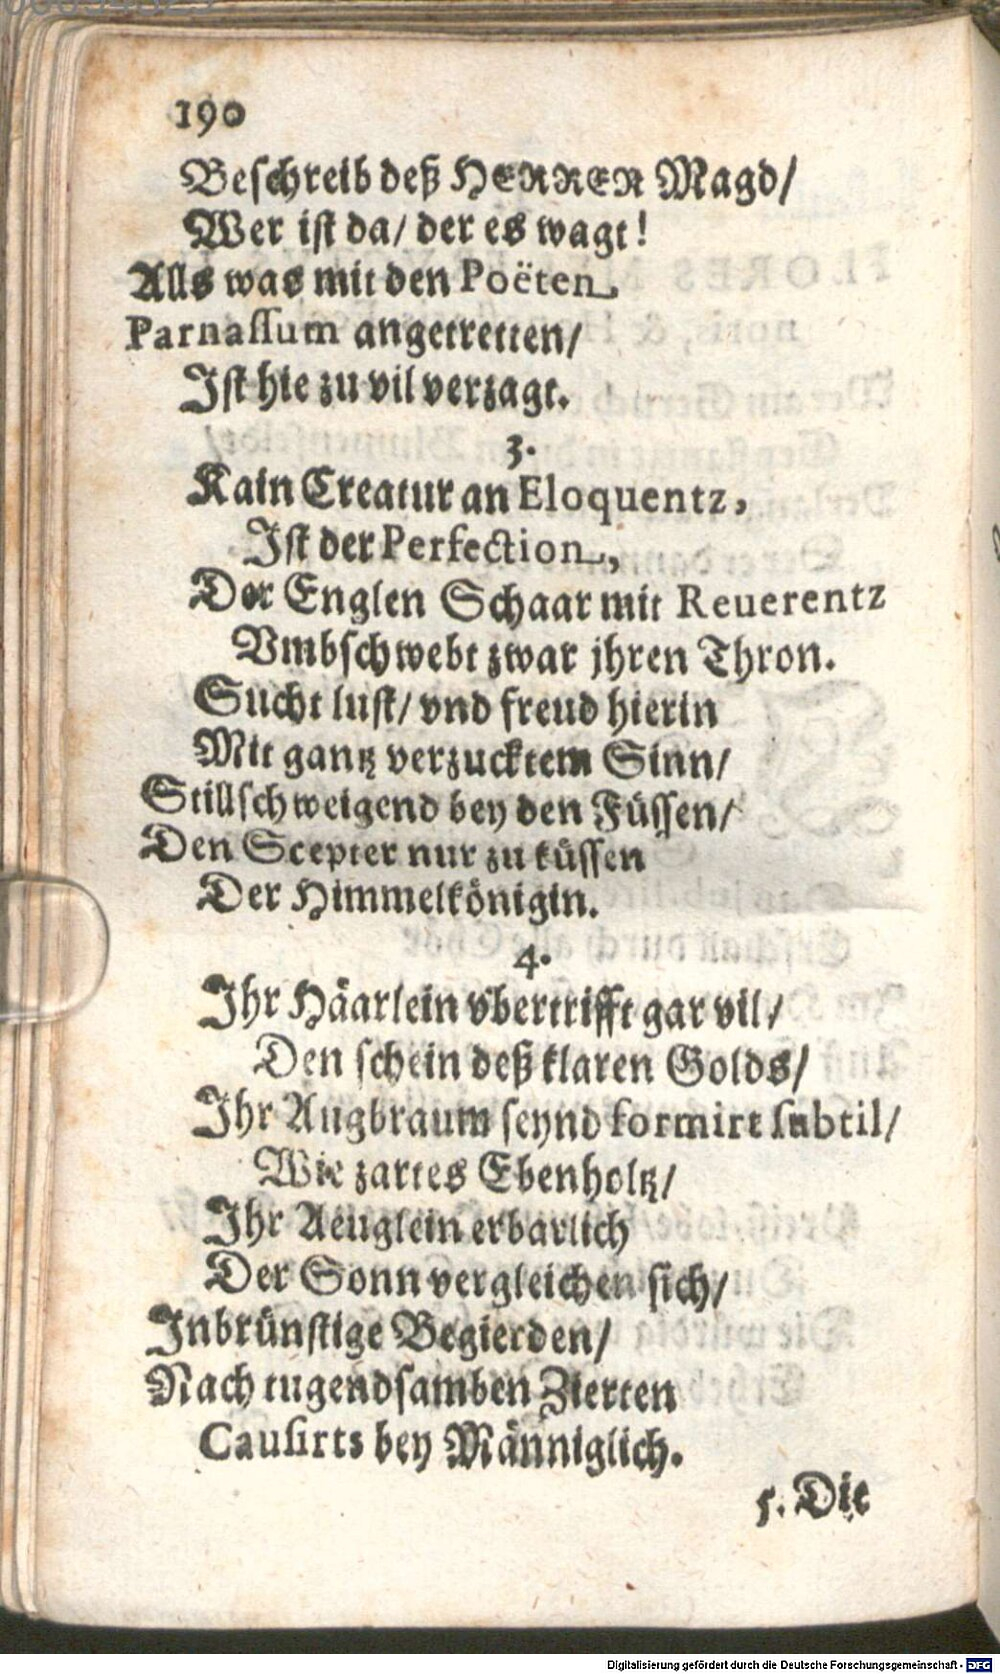 190
Beschreib deß HERREN Magd/
Wer ist da/ der es wagt!
Alls was mit den Poëten,
Parnassum angetretten/
Ist hie zu vil verzagt.
3.
Kain Creatur an Eloquentz,
Ist der Perfection,
Der Englen Schaar mit Reuerentz
Vmbschwebt zwar jhren Thron.
Sucht lust/ vnd freud hierin
Mit gantz verzucktem Sinn/
Stillschweigend bey den Füssen/
Den Scepter nur zu küssen
Der Himmelkönigin.
4.
Ihr Häarlein vbertrifft gar vil/
Den schein deß klaren Golds/
Ihr Augbraum seynd formirt subtil/
Wie zartes Ebenholtz/
Ihr Aeuglein erbarlich
Der Sonn vergleichen sich/
Inbrünstige Begierden/
Nach tugendsamben Zierten
Causirts bey Männiglich.
5. Die
Digitalisierung gefördert durch die Deutsche Forschungsgemeinschaft - DFG